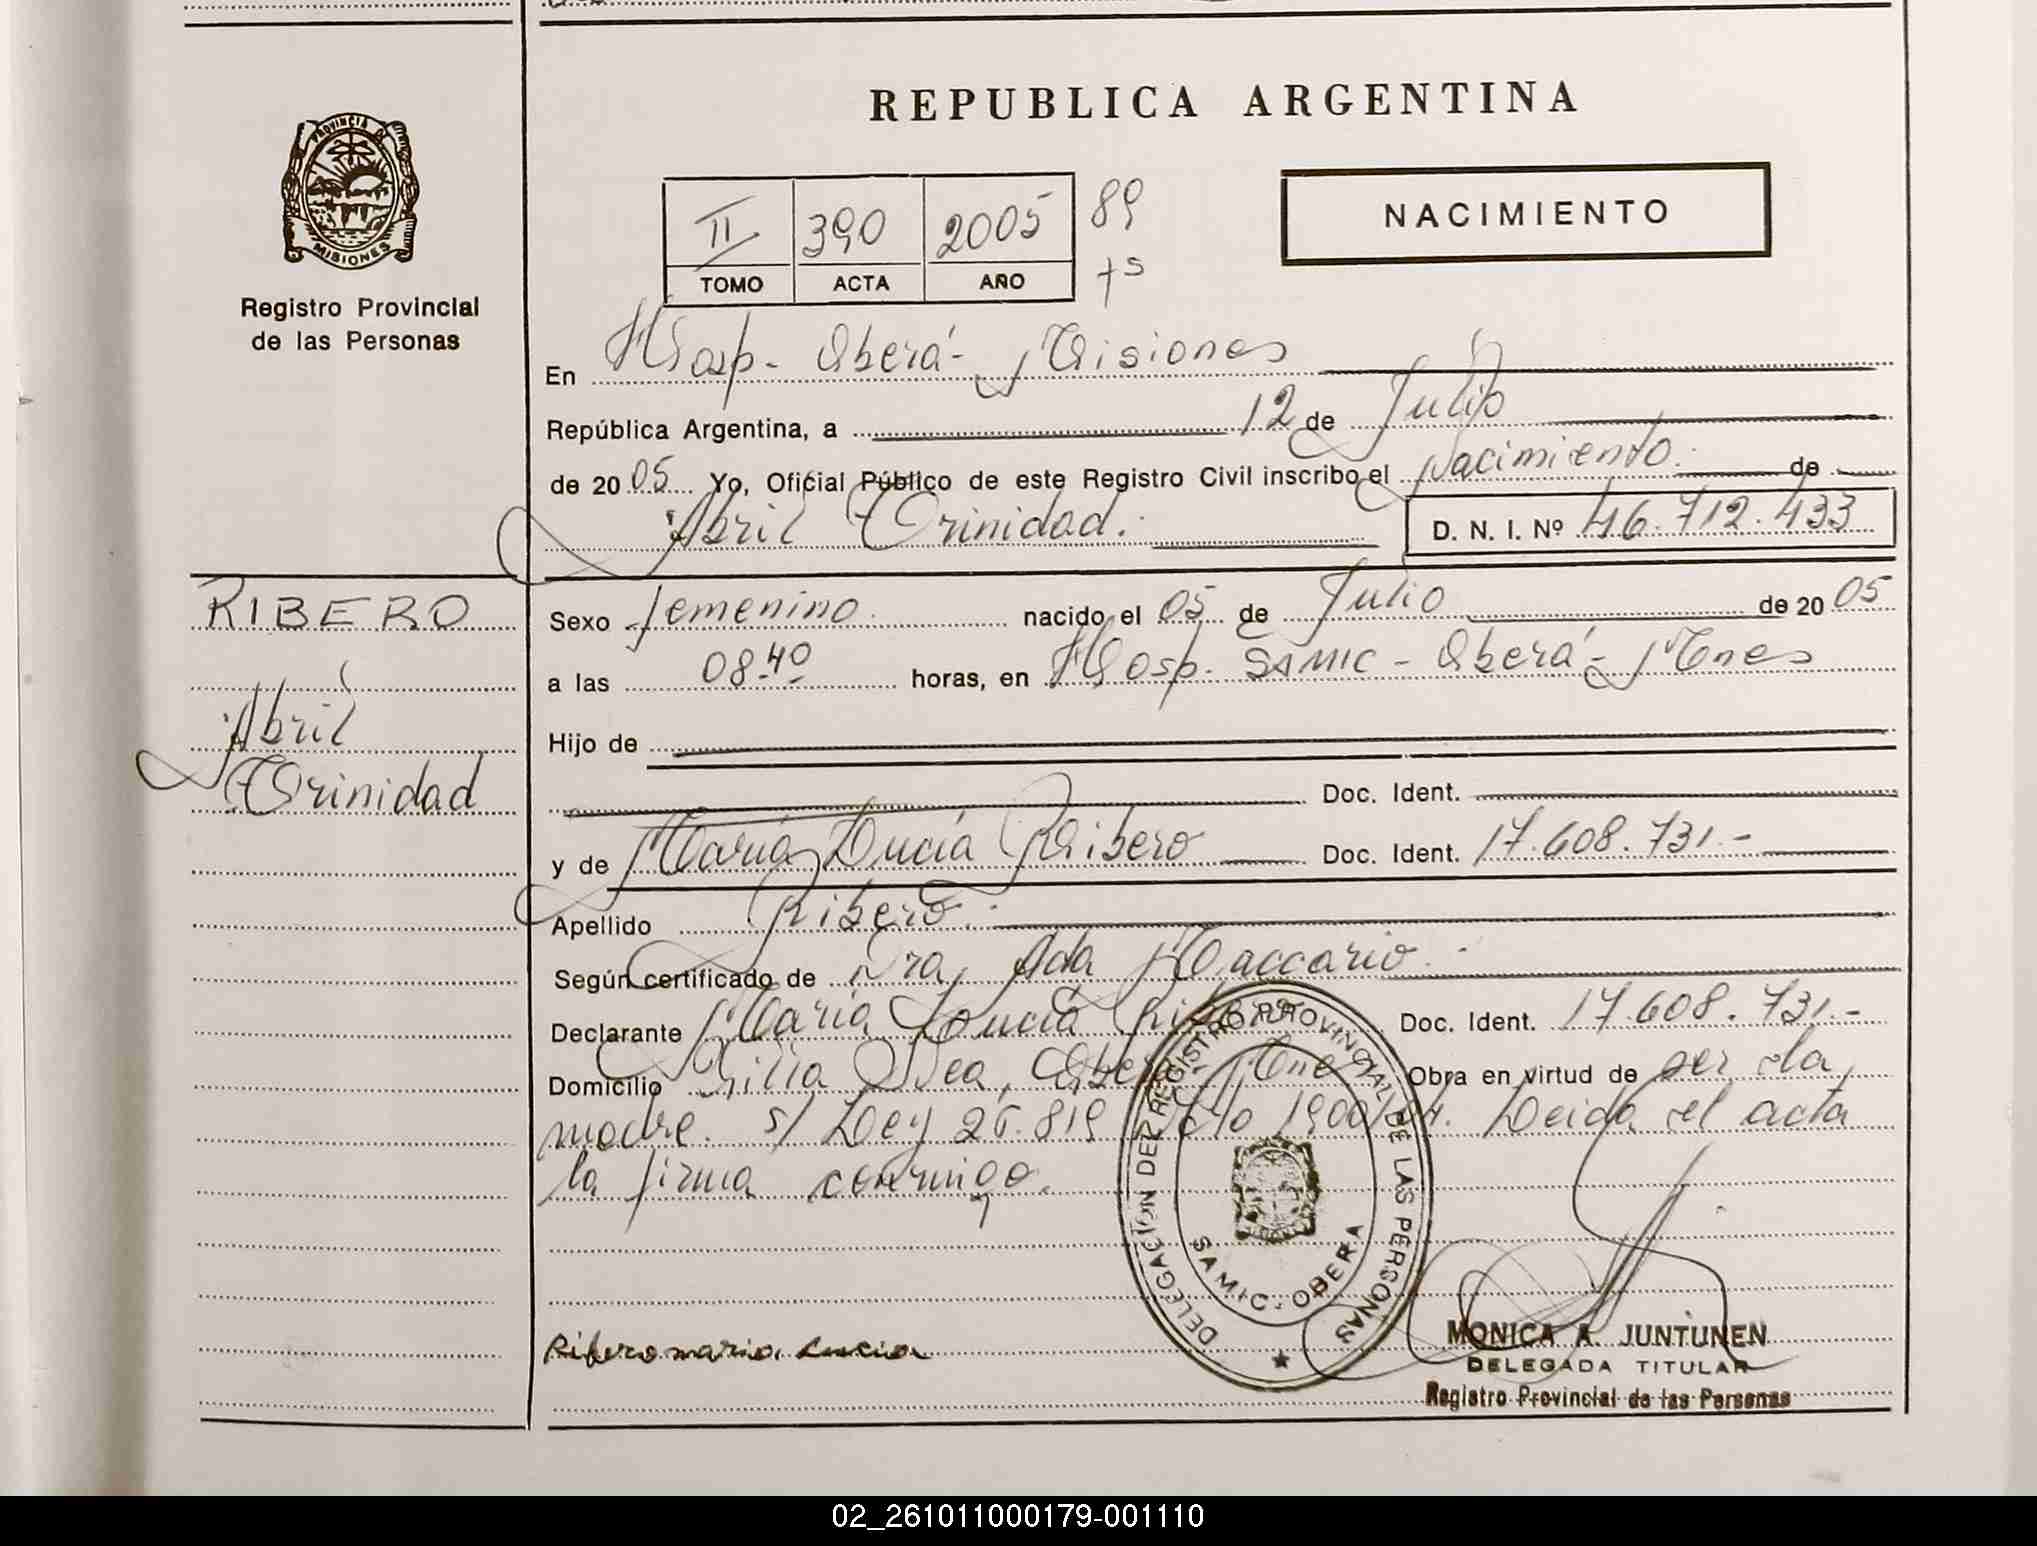 REPUBLICA ARGENTINA
PROVINCIA DE
MISIONES
Registro Provincial
de las Personas
II 390 2005 89
TOMO ACTA AÑO
NACIMIENTO
En Hosp- Oberá- Misiones
República Argentina, a 12 de Julio
de 2005 Yo, Oficial Público de este Registro Civil inscribo el Nacimiento. de
Abril Trinidad. D. N. I. Nº 46.712.433
RIBERO
Abril
Trinidad
Sexo femenino. nacido el 05 de Julio de 2005
a las 08 40 horas, en Hosp. SAMIC - Oberá- Mnes
Hijo de
Doc. Ident.
y de María Lucía Ribero Doc. Ident. 17.608.731.-
Apellido Ribero.
Según certificado de Dra, Ada Maccario.
Declarante María Lucía Ribero Doc. Ident. 17.608.731.-
Domicilio Oberá- Mnes Obra en virtud de ser la
madre. s/ Ley 26.819 Leida el acta
la firma conmigo.
DELEGACION DEL REGISTRO PROVINCIAL DE LAS PERSONAS
SAMIC-OBERA
Ribero maria Lucia
MONICA A. JUNTUNEN
DELEGADA TITULAR
Registro Provincial de las Personas
02_261011000179-001110